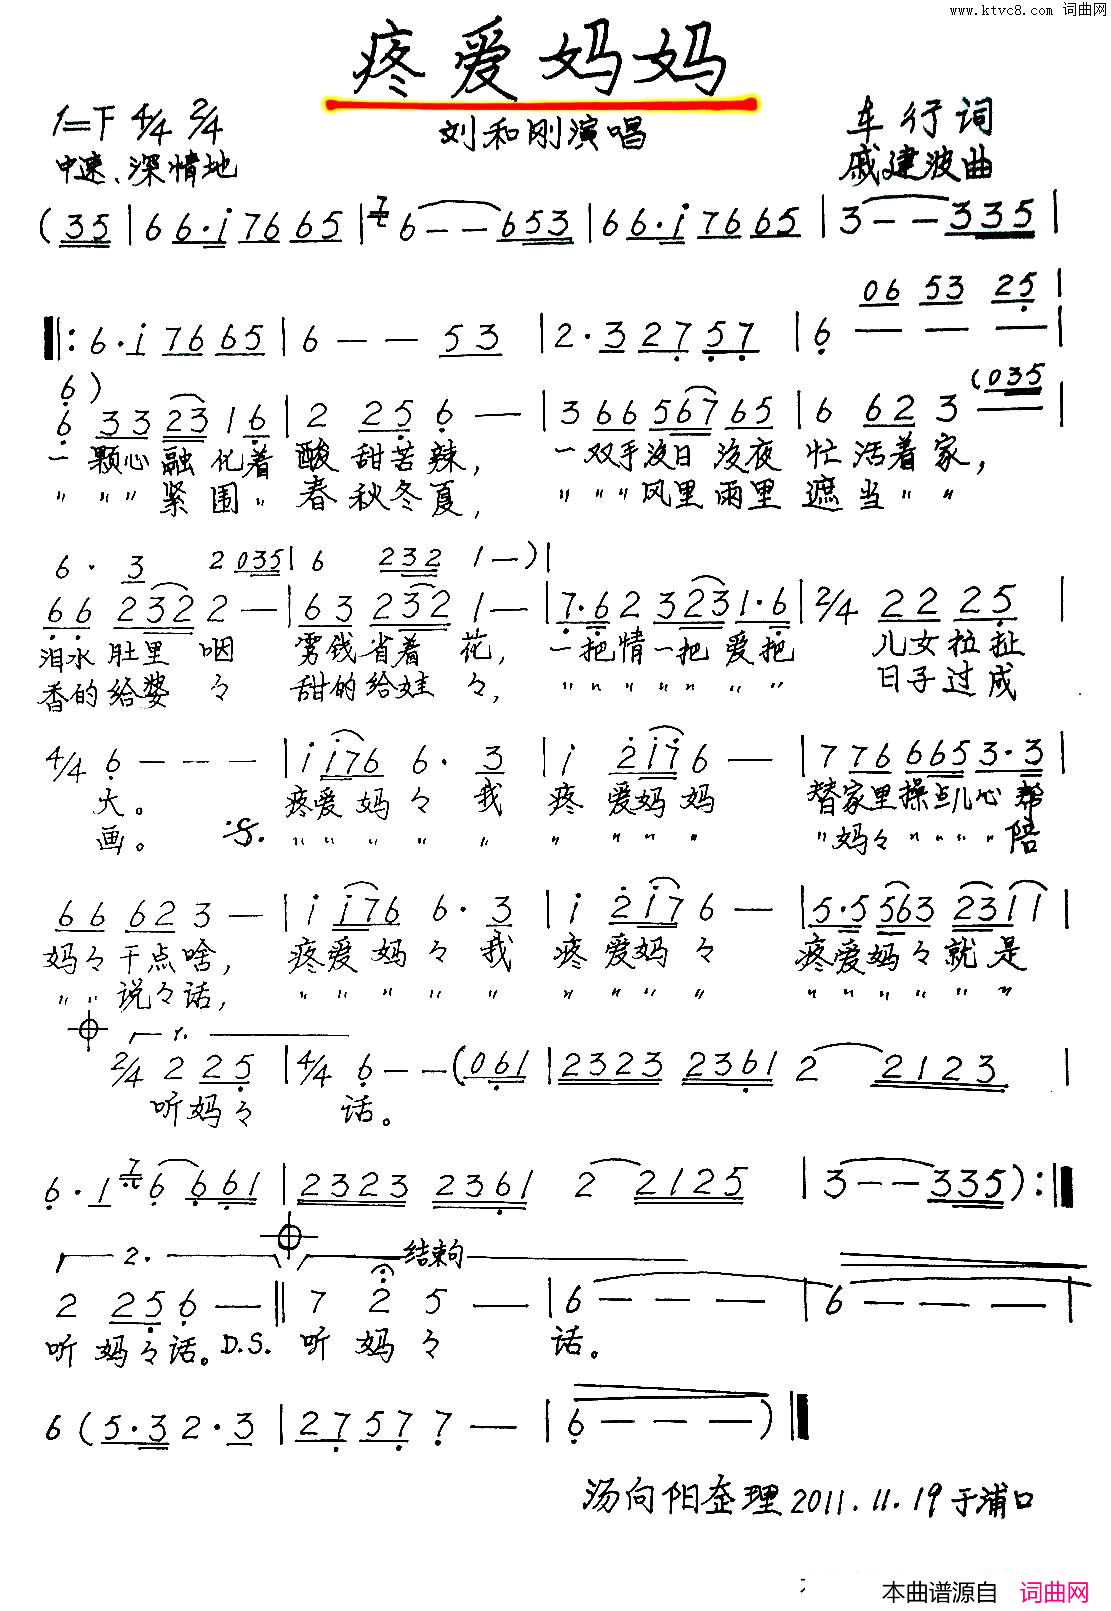 www.ktvc8.com 词曲网
疼爱妈妈
1=F 4/4 2/4
刘和刚演唱
车行词
中速、深情地
戚建波曲
(35 | 66·i 76 65 | 6 - - 653 | 66·i 76 65 | 3 - - 335 |
06 53 25 |
‖: 6·i 76 65 | 6 - - 53 | 2·3 27 57 | 6 - - - |
6) (035
6 33 23 16 | 2 25 6 - | 3 66 567 65 | 6 62 3 - |
一颗心融化着 酸甜苦辣, 一双手没日没夜 忙活着家,
〃〃〃紧围〃 春秋冬夏, 〃〃〃风里雨里 遮当〃〃
6· 3 2 035 | 6 232 1 - ) |
66 232 2 - | 63 232 1 - | 7·6 2 323 1·6 | 2/4 22 25 |
泪水肚里咽 雾钱省着花, 一把情一把爱把 儿女拉扯
香的给婆々 甜的给娃々, 〃〃〃〃〃〃〃 日子过成
4/4 6 - - - | i i76 6· 3 | i 2i7 6 - | 7 776 665 3·3 |
大。 疼爱妈々我 疼爱妈妈 替家里操点儿心帮
画。 :S. 〃〃〃〃〃 〃〃〃〃 〃妈々〃〃〃〃陪
66 62 3 - | i i76 6· 3 | i 2i7 6 - | 5·5 563 231 1 |
妈々干点啥, 疼爱妈々我 疼爱妈々 疼爱妈々就是
〃〃说々话, 〃〃〃〃〃 〃〃〃〃 〃〃〃〃〃〃
1.
2/4 2 25 | 4/4 6 - - (061 | 2323 2361 2 2123 |
听妈々 话。
6·1 6 661 | 2323 2361 2 2125 | 3 - - 335) :‖
2. 结束句
2 25 6 - ‖ 7 2 5 - | 6 - - - | 6 - - - |
听妈々话。D.S. 听妈々 话。
6 (5·3 2·3 | 27 57 7 - | 6 - - - ) ‖
汤向阳整理 2011.11.19于浦口
本曲谱源自 词曲网